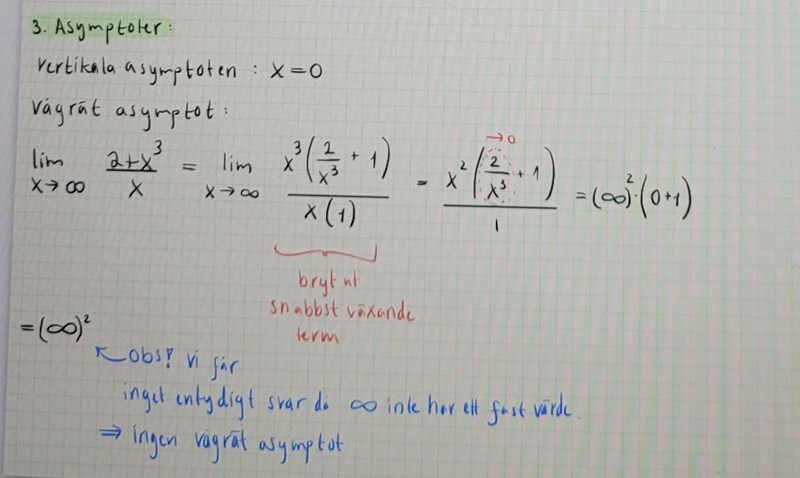 3. Asymptoter:
vertikala asymptoten : x=0
vågrät asymptot:
lim x→∞ (2+x³)/x = lim x→∞ (x³(2/x³ + 1))/(x(1)) = (x²(2/x³ + 1))/1 = (∞)²·(0+1)
→0
bryt ut
snabbst växande
term
=(∞)²
obs! vi får
inget entydigt svar då ∞ inte har ett fast värde.
⇒ ingen vågrät asymptot